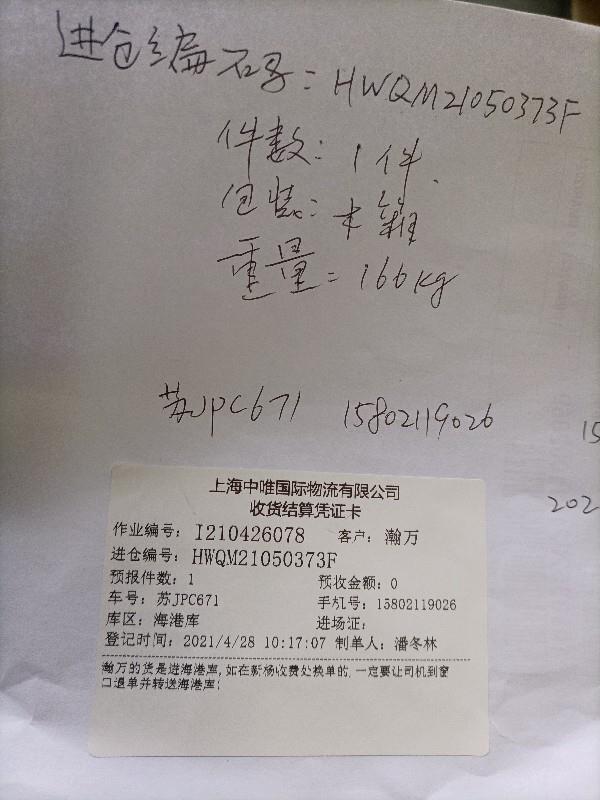 进仓编码：HWQM21050373F
件数：1件.
包装：木箱
重量：166kg
苏JPC671 15802119026
15
202
上海中唯国际物流有限公司
收货结算凭证卡
作业编号：I210426078 客户：瀚万
进仓编号：HWQM21050373F
预报件数：1 预收金额：0
车号：苏JPC671 手机号：15802119026
库区：海港库 进场证：
登记时间：2021/4/28 10:17:07 制单人：潘冬林
瀚万的货是进海港库,如在新杨收费处换单的,一定要让司机到窗
口退单并转送海港库;